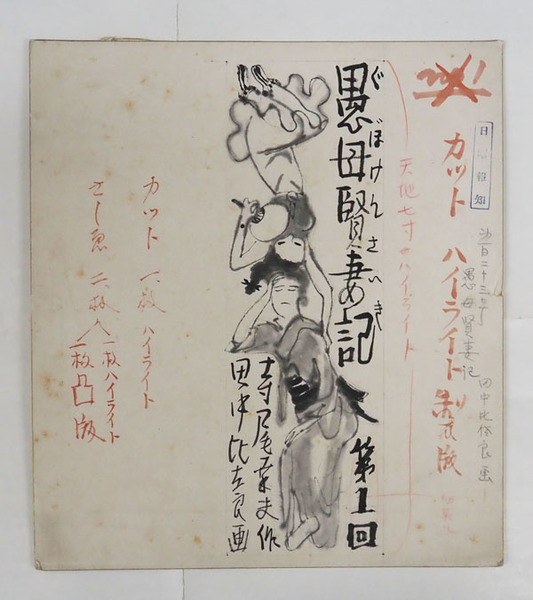 カット ハイライト製版
田中比佐良画
愚母賢妻記
天地七寸 ハイライト
愚母賢妻記
ぐぼけんさいき
第1回
寺尾幸夫作
田中比左良画
カット 一枚 ハイライト
さし画 二枚 一枚ハイライト
一枚凸版